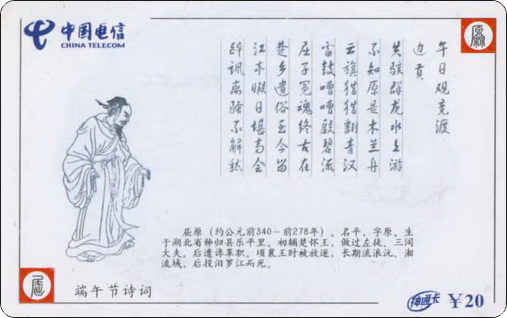 中国电信
CHINA TELECOM
原
午日观竞渡
边贡
共骇群龙水上游
不知原是木兰舟
云旗猎猎翻青汉
雷鼓嘈嘈殷碧流
屈子冤魂终古在
楚乡遗俗至今留
江亭暇日堪高会
醉讽离骚不解愁
屈原（约公元前340－前278年）。名平，字原。生
于湖北省秭归县乐平里。初辅楚怀王，做过左徒、三闾
大夫，后遭谗革职，顷襄王时被放逐，长期流浪沅、湘
流域，后投汨罗江而死。
屈
端午节诗词
神通卡 ￥20